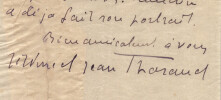 a déjà fait son portrait.
Bien amicalement à vous
Jérôme et Jean Tharaud